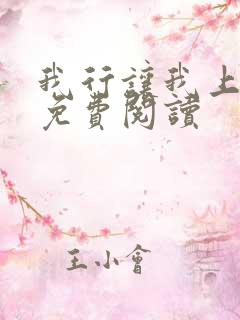 我行讓我上
免費閱讀
王小會